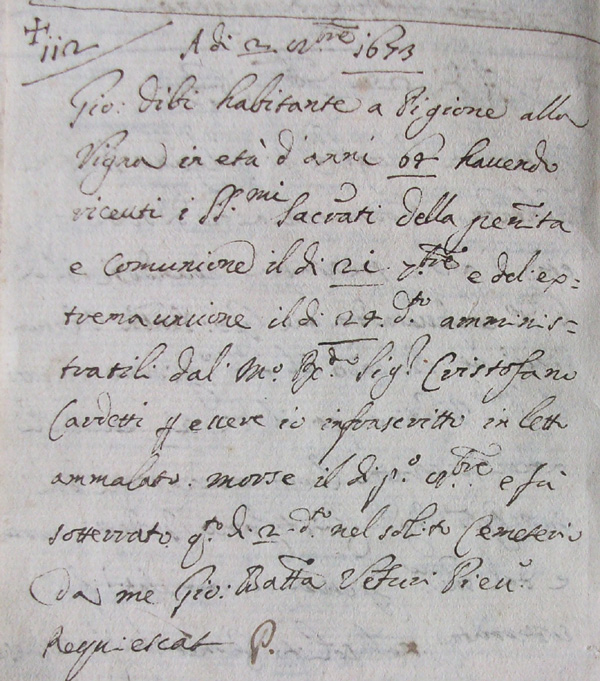 + 112 A di 2 8bre 1673
Gio: dibi habitante a Pigione alla
Vigna in età d'anni 64 havendo
riceuti i SS.mi Sacrati della penita
e Comunione il di 21 7bre e del ex=
trema unzione il di 24 dto amminis=
tratili dal Mo Rdo Sigr Cristofano
Cardetti p essere io infrascritto in letto
ammalato. morse il di po 8bre e fu
sotterrato qto di 2 dto nel solito Cemeterio
da me Gio: Batta Veturi Pievo
Requiescat P.